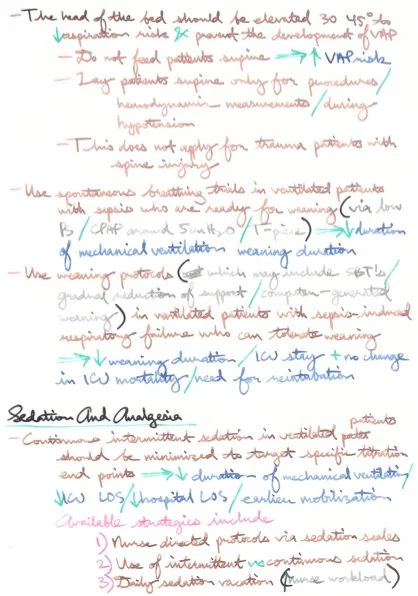 - The head of the bed should be elevated 30 45° to
↓aspiration risk & prevent the development of VAP
- Do not feed patients supine → ↑ VAP risk
- Lay patients supine only for procedures/
hemodynamic measurements/during
hypotension
- This does not apply for trauma patients with
spine injury
- Use spontaneous breathing trails in ventilated patients
with sepsis who are ready for weaning (via low
PS / CPAP around 5cm H2O / T-piece) → ↓duration
of mechanical ventilation weaning duration
- Use weaning protocols (which may include SBT's/
gradual reduction of support / computer-generated
weaning) in ventilated patients with sepsis-induced
respiratory failure who can tolerate weaning
→ ↓weaning duration / ICU stay + no change
in ICU mortality/need for reintubation
Sedation And Analgesia
- Continuous intermittent sedation in ventilated patients
should be minimized to target specific titration
end points → ↓ duration of mechanical ventilation/
↓ICU LOS/↓hospital LOS/earlier mobilization
Available strategies include
1) Nurse directed protocols via sedation scales
2) Use of intermittent vs continuous sedation
3) Daily sedation vacation (nurse workload)